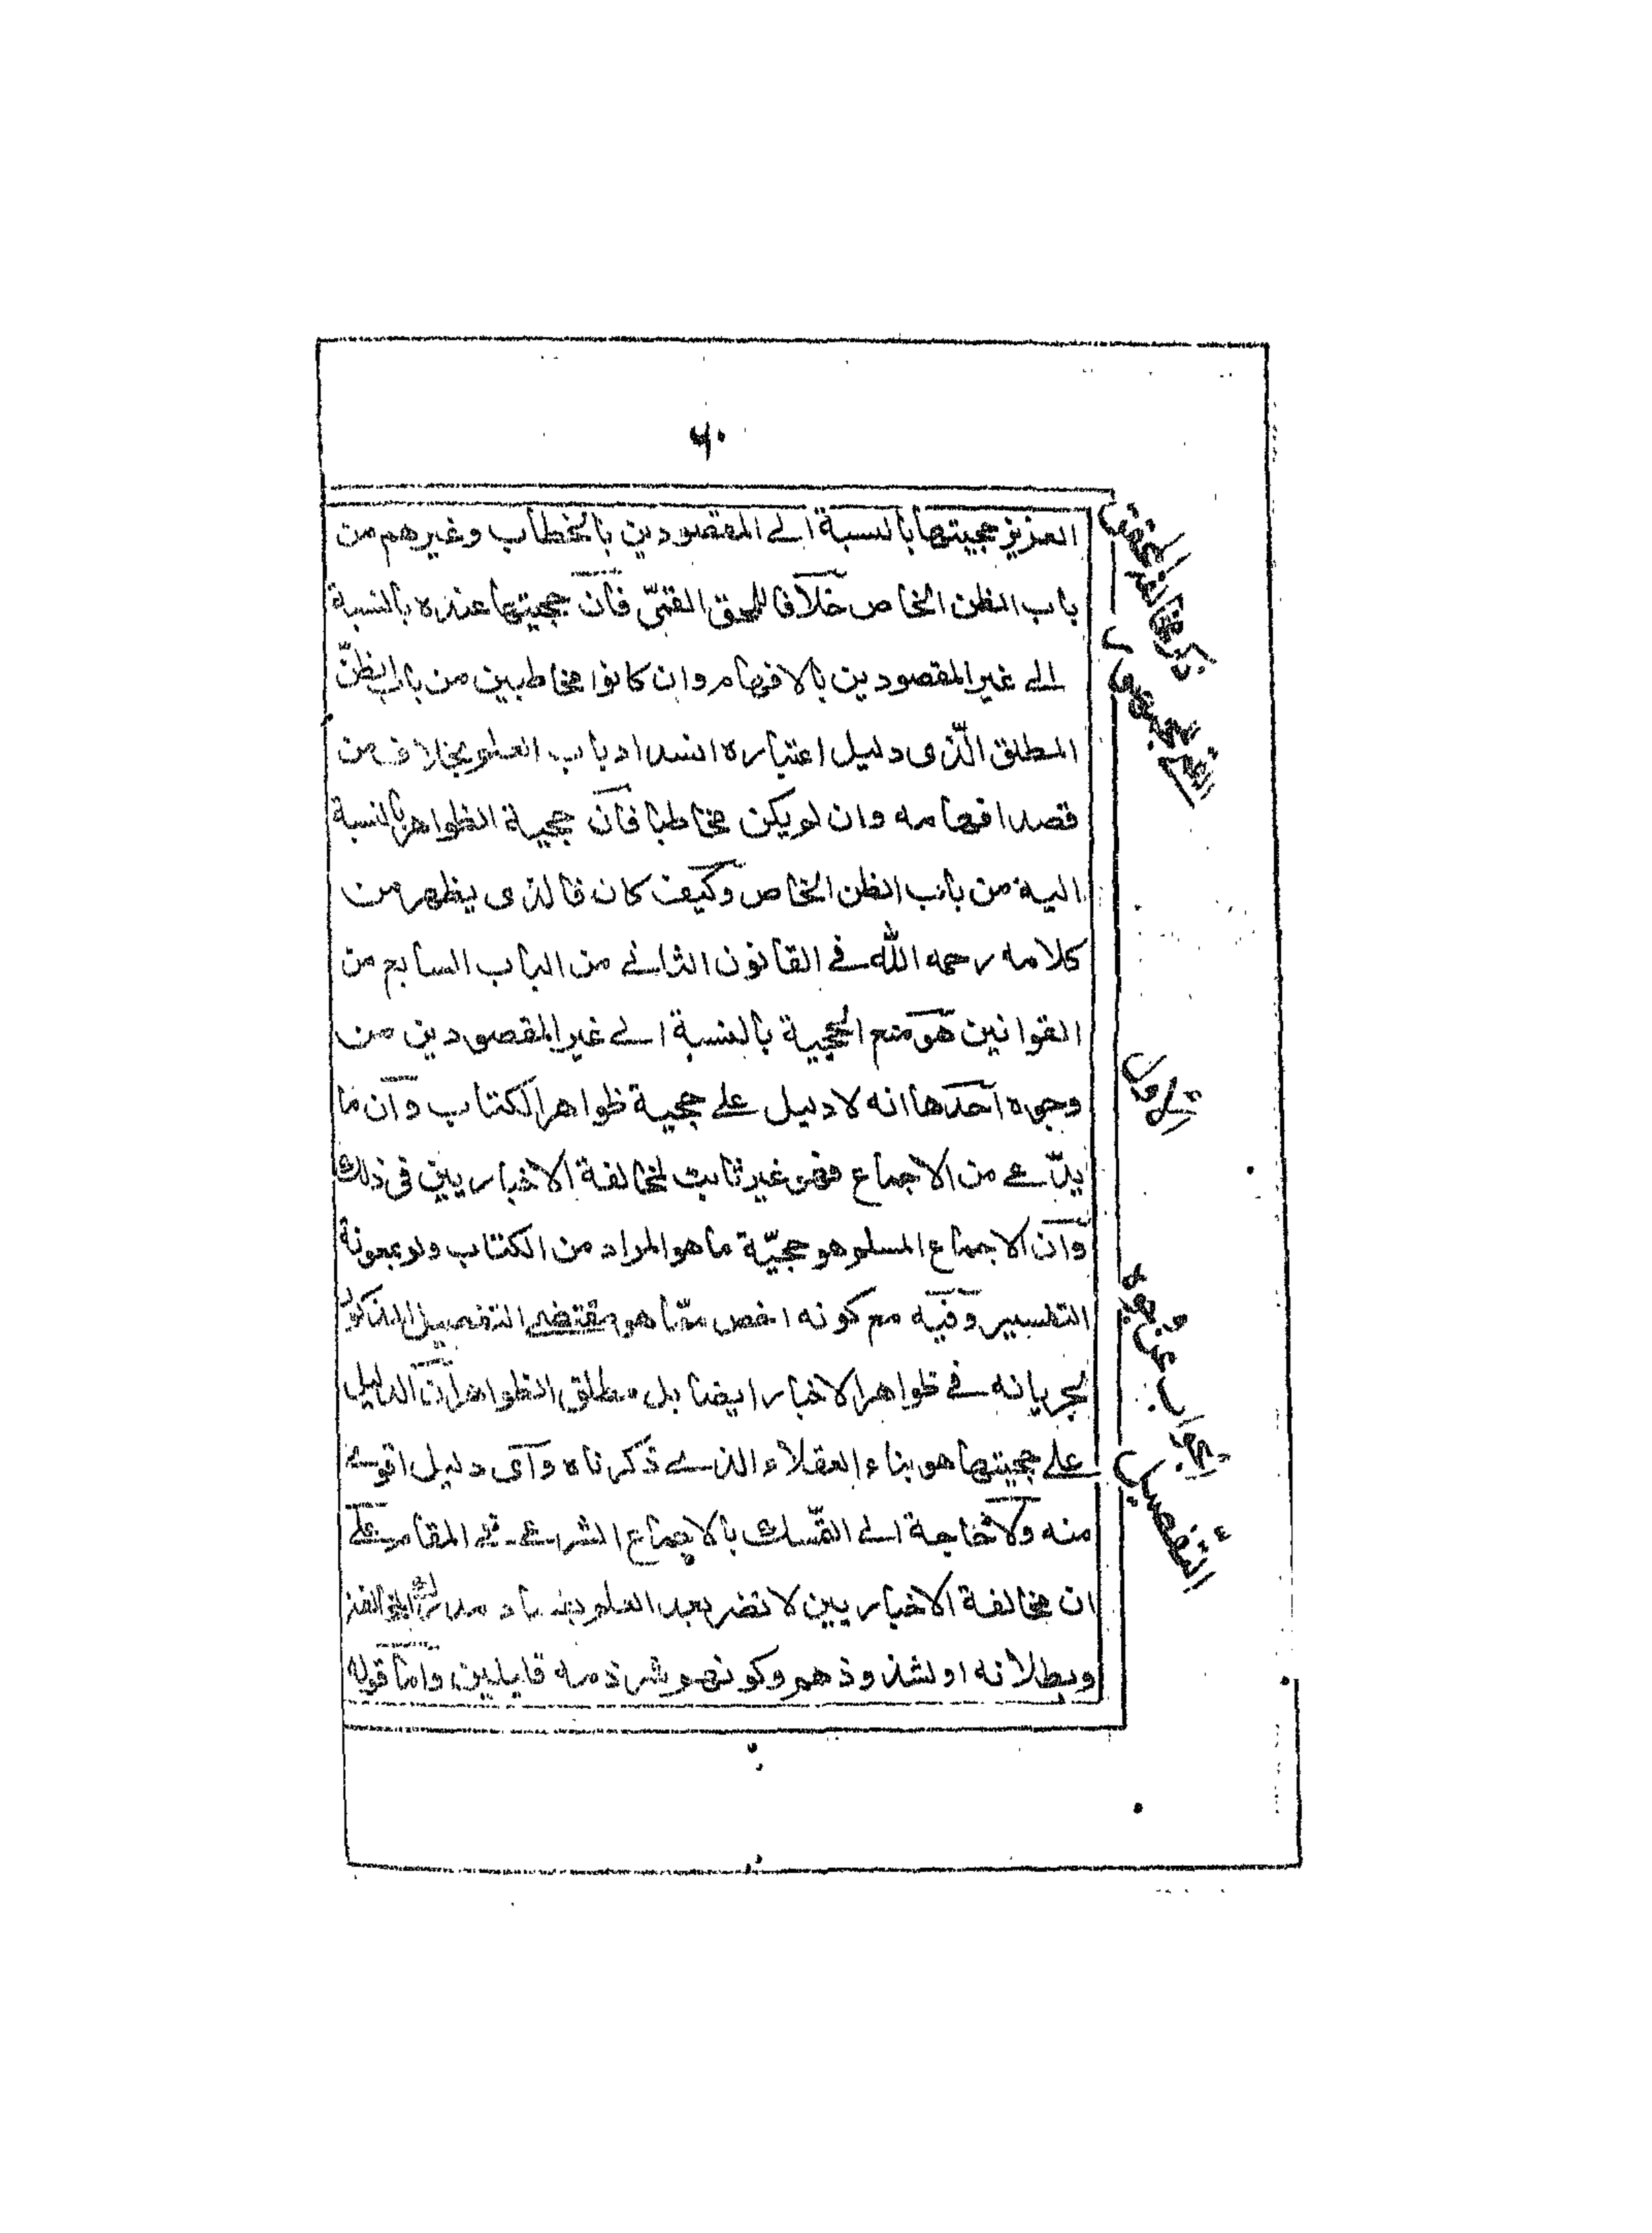 ۶۰
العزيز حجيتها بالنسبة الے المقصودين بالخطاب وغيرهم من
باب الظن الخاص خلافا للمحقق القمّي فان حجيتها عنده بالنسبة
الے غير المقصودين بالافهام وان كانوا مخاطبين من باب الظنّ
المطلق الّذى دليل اعتباره انسداد باب العلم بخلاف من
قصد افهامه وان لم يكن مخاطبا فان حجية الظواهر بالنسبة
اليه من باب الظن الخاص وكيف كان فالذى يظهر من
كلامه رحمه الله فے القانون الثانے من الباب السابع من
القوانين هو منع الحجية بالنسبة الے غير المقصودين من
وجوه احدها انه لا دليل علے حجية ظواهر الكتاب وان ما
يدّعے من الاجماع فهو غير ثابت لمخالفة الاخباريين فى ذلك
وان الاجماع المسلم هو حجيّة ما هو المراد من الكتاب ولو بمعونة
التفسير وفيه مع كونه اخص ممّا هو مقتضے التفصيل المذكور
لجريانه فے ظواهر الاخبار ايضا بل مطلق الظواهر ان الدليل
علے حجيتها هو بناء العقلاء الذے ذكرناه واى دليل اقوے
منه ولا حاجة الے التمّسك بالاجماع الشرعے فے المقام علے
ان مخالفة الاخباريين لا تضر بعد العلم بفساد مدرك المخالفة
وبطلانه او لشذوذهم وكونهم شرذمه قليلين واما قوله
الاول
الجواب عن وجوه
التفصيل